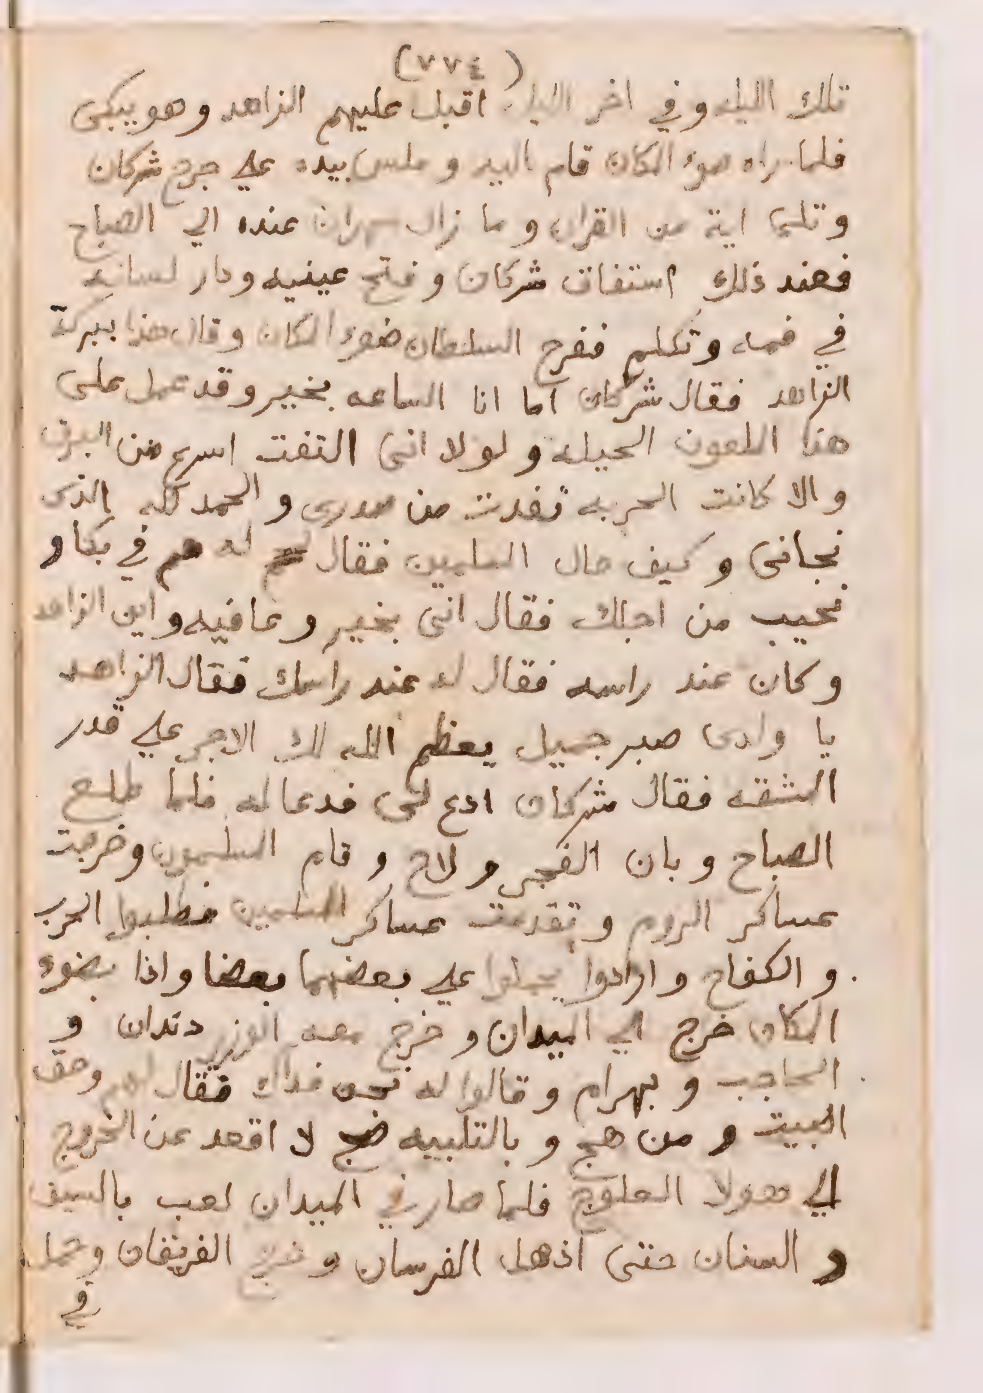 (٧٧٤)
تلك الليله وفي اخر الليل اقبل عليهم الزاهد وهو يبكى
فلما راه ضوء المكان قام اليه و ملس بيده علي جرح شركان
وتلى اية من القران و ما زال سهران عنده الي الصباح
فعند ذلك استفاق شركان و فتح عينيه ودار لسانه
في فمه وتكلم ففرح السلطان ضوء المكان وقال هذا ببركة
الزاهد فقال شركان اما انا الساعه بخير وقد عمل على
هذا الملعون الحيله و لولا انى التفت اسرع من البرق
والا كانت الحربه نفدت من صدرى و الحمد لله الذى
نجانى و كيف حال المسلمين فقال له هم في بكا و
نحيب من اجلك فقال انى بخير وعافيه و اين الزاهد
و كان عند راسه فقال له عند راسك فقال الزاهد
يا ولدى صبر جميل يعظم الله لك الاجر علي قدر
المشقه فقال شركان ادع لى فدعا له فلما طلع
الصباح و بان الفجر و لاح و قام المسلمون وخرجت
عساكر الروم و تقدمت عساكر المسلمين فطلبوا الحرب
و الكفاح و ارادوا يحملوا علي بعضهما بعضا واذا بضوء
المكان خرج الي الميدان و خرج معه الوزير دندان و
الحاجب و بهرام و قالوا له نحن فداك فقال لهم وحق
البيت و من حج و بالتلبيه ضج لا اقعد عن الخروج
الي هولا العلوج فلما صار في الميدان لعب بالسيف
و السنان حتى اذهل الفرسان و الفريقان وحمل
في